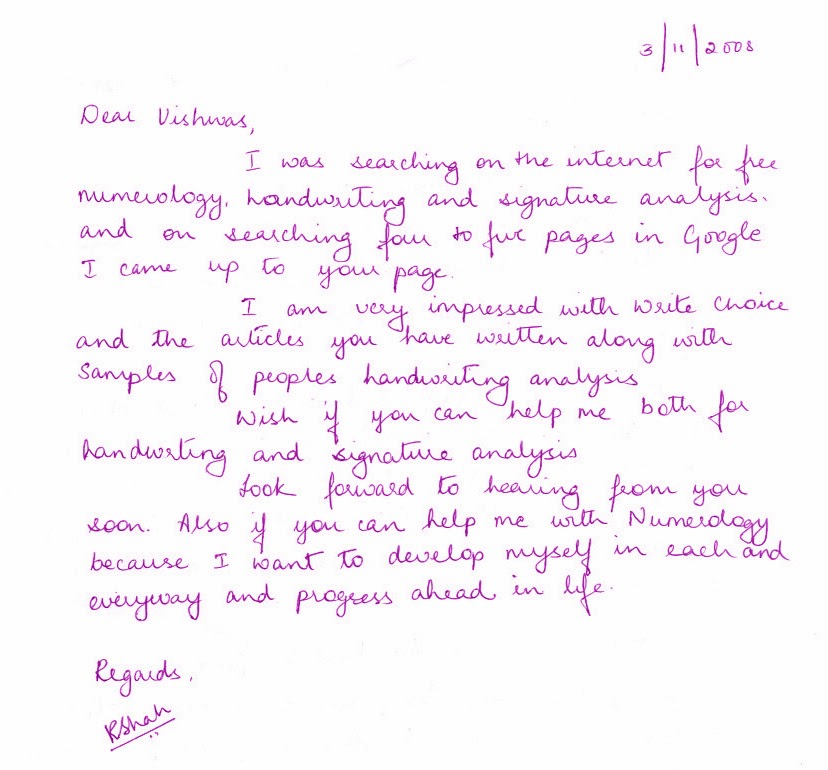 3/11/2008
Dear Vishwas,
I was searching on the internet for free
numerology, handwriting and signature analysis.
and on searching four to five pages in Google
I came up to your page.
I am very impressed with Write Choice
and the articles you have written along with
Samples of peoples handwriting analysis
Wish if you can help me both for
handwriting and signature analysis
Look forward to hearing from you
soon. Also if you can help me with Numerology
because I want to develop myself in each and
everyway and progress ahead in life.
Regards,
RShah